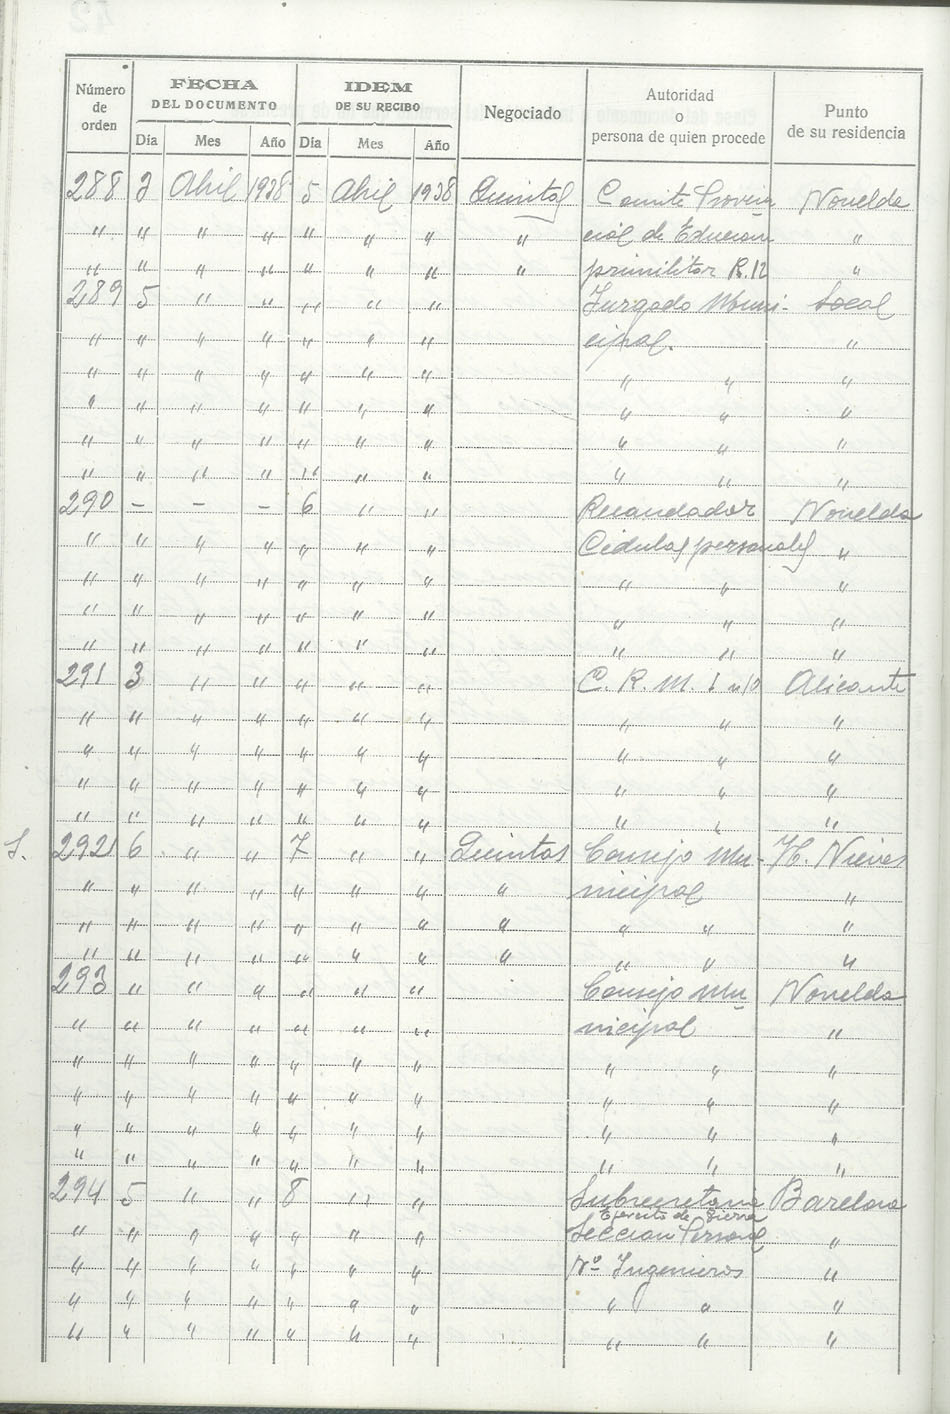 Número de orden | FECHA DEL DOCUMENTO | IDEM DE SU RECIBO | Negociado | Autoridad o persona de quien procede | Punto de su residencia
Día | Mes | Año | Día | Mes | Año
288 3 Abril 1938 5 Abril 1938 Quintas Comité Provin Novelda
" " " " " " " " cial de Educion "
" " " " " " " " primilitar R.12 "
289 5 " " " " " Juzgado Muni- Local
" " " " " " " cipal. "
" " " " " " " " " "
" " " " " " " " " "
" " " " " " " " " "
" " " " " " " " " "
290 - - - 6 " " Recaudador Novelda
" " " " " " " Cédulas personales "
" " " " " " " " " "
" " " " " " " " "
" " " " " " " " " "
291 3 " " " " " C. R. M. Alicante
" " " " " " " " " "
" " " " " " " " " "
" " " " " " " " " "
" " " " " " " " " "
S. 292 6 " " 7 " " Quintas Consejo Mu- H. Nieves
" " " " " " " " nicipal "
" " " " " " " " " " "
" " " " " " " " " " "
293 " " " " " " Consejo Mu Novelda
" " " " " " " nicipal "
" " " " " " " " " "
" " " " " " " " " "
" " " " " " " " " "
" " " " " " " " " "
294 5 " " 8 " " Subsecretaria Barelona
Ejército de Tierra
" " " " " " " Sección Personal "
" " " " " " " Nº Ingenieros "
" " " " " " " " " "
" " " " " " " " " "